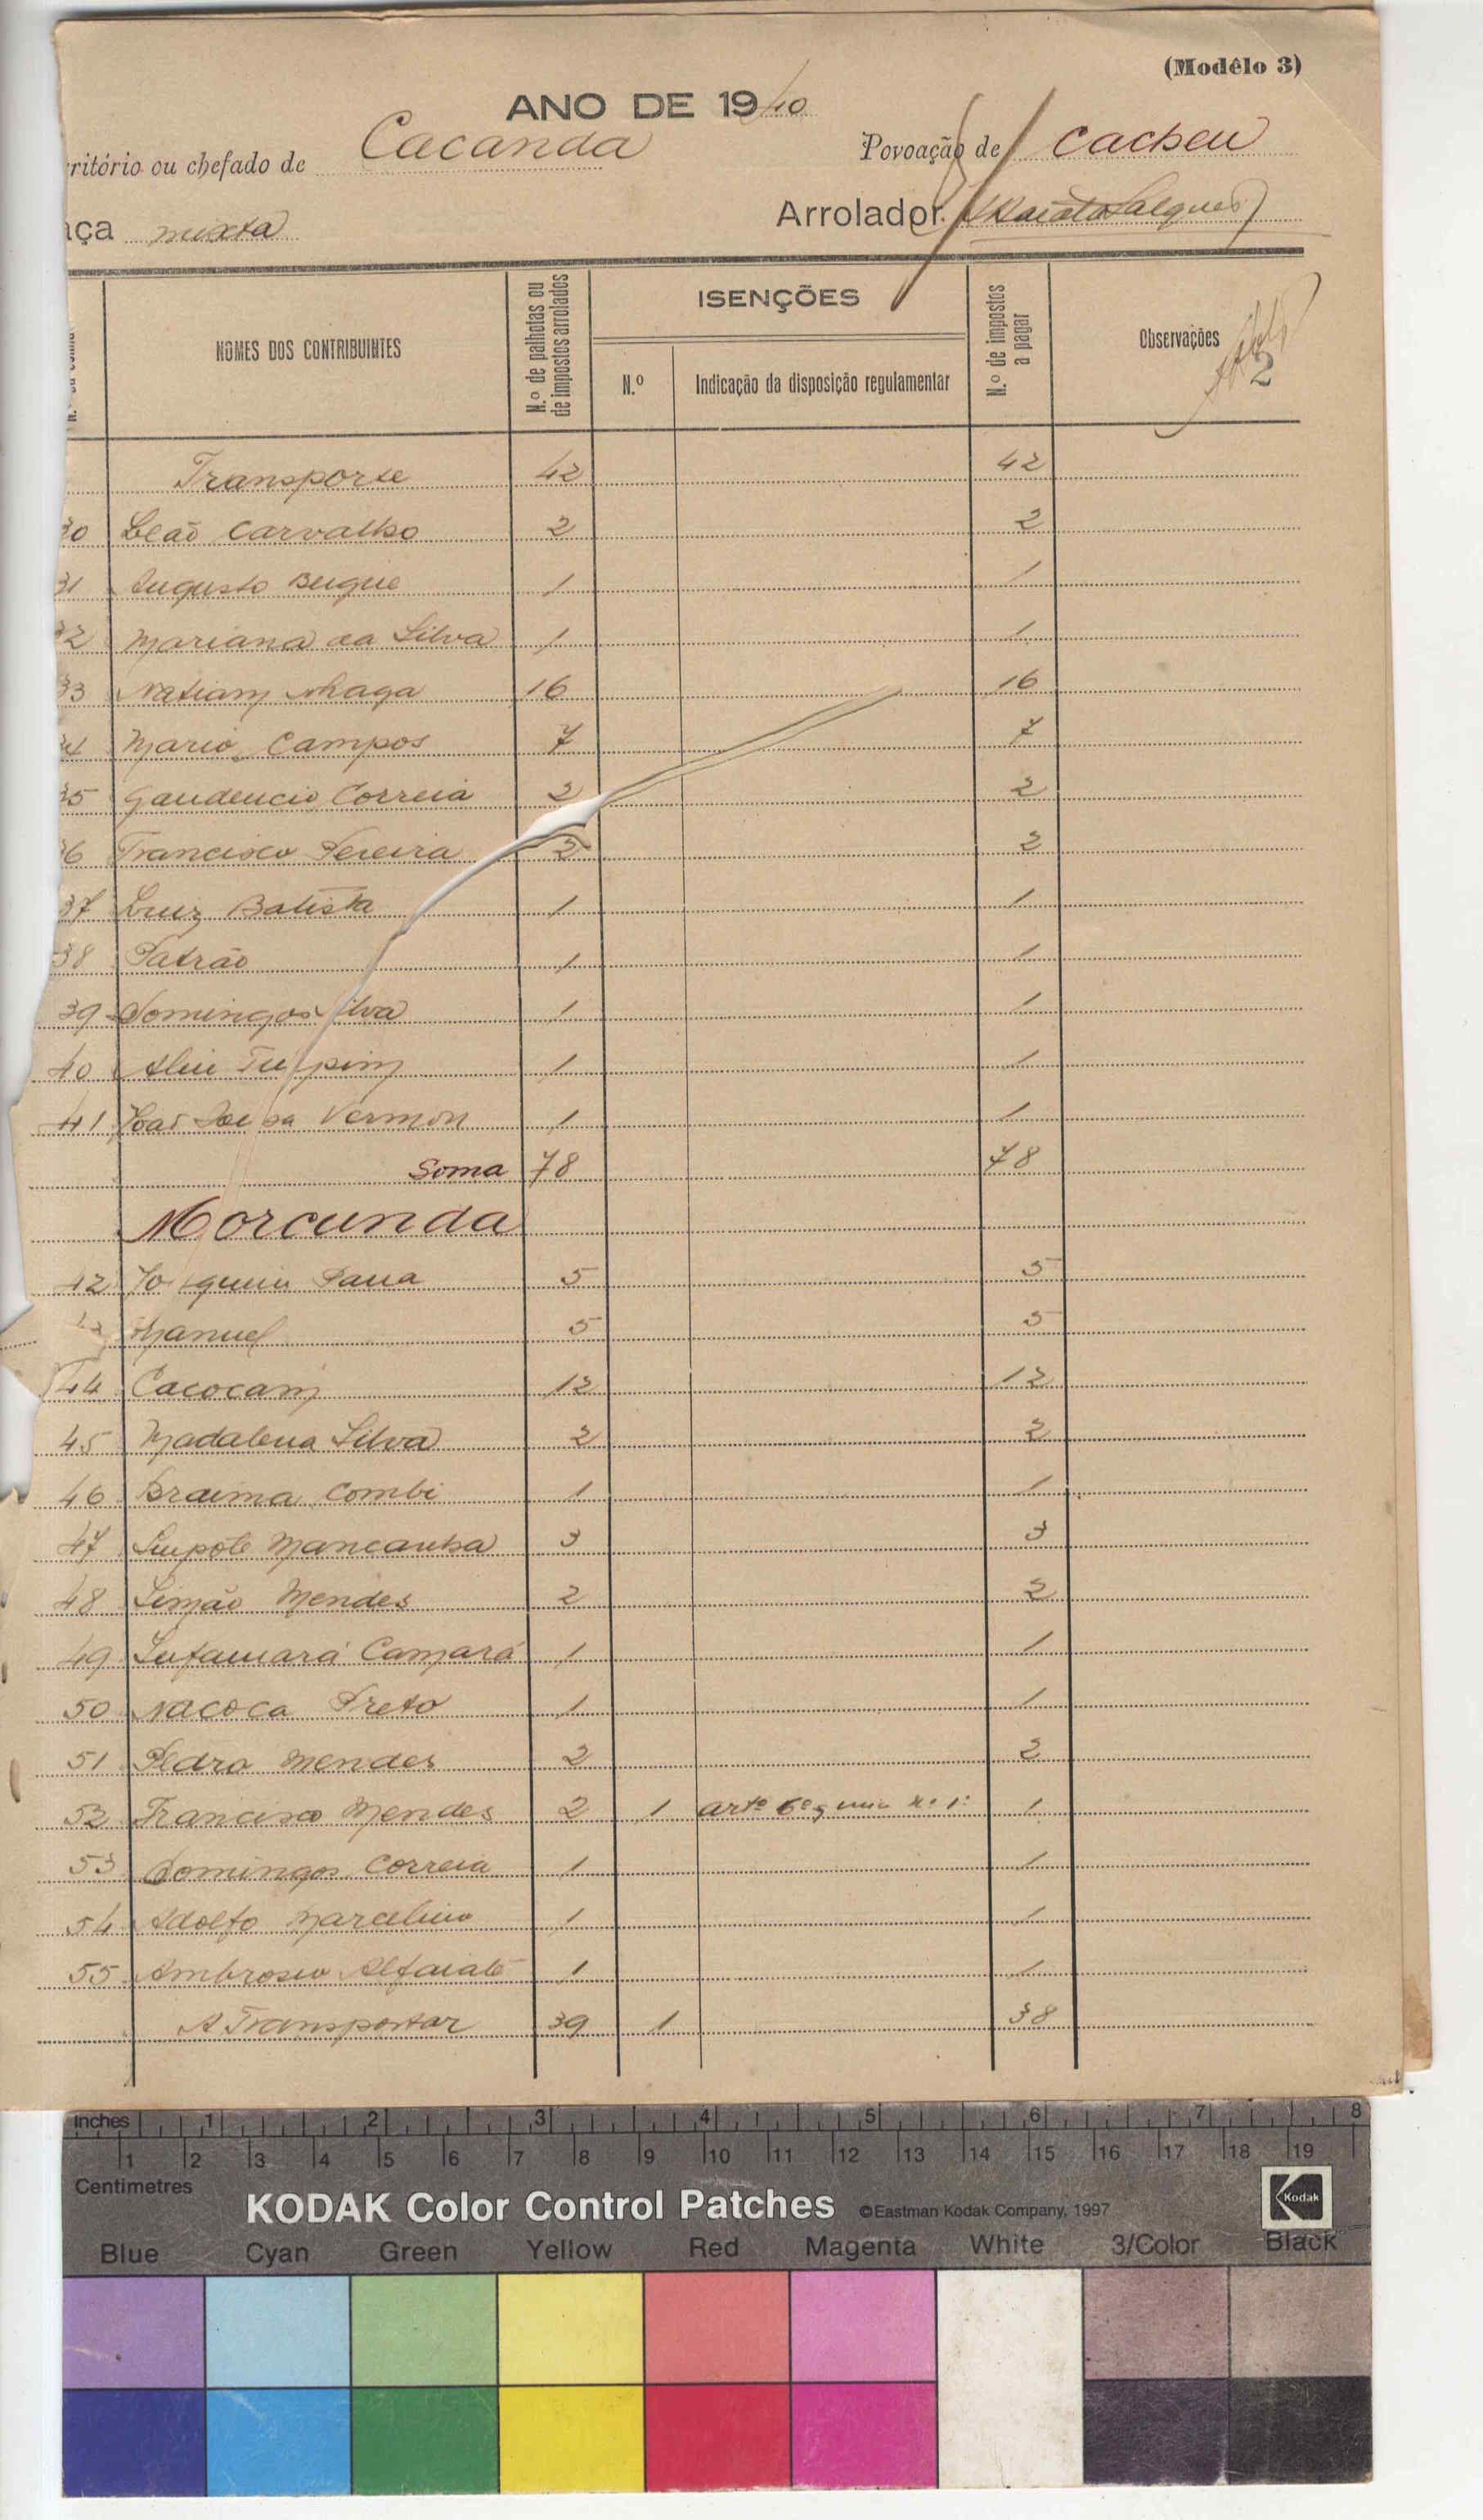 (Modêlo 3)
ANO DE 1940
rritório ou chefado de Cacanda Povoação de Cacheu
aça mixta Arrolador
NOMES DOS CONTRIBUINTES
N.º de palhotas ou de impostos arrolados
ISENÇÕES
N.º
Indicação da disposição regulamentar
N.º de impostos a pagar
Observações
2
Transporte 42 42
30 Leão Carvalho 2 2
31 Augusto 1 1
32 Mariana da Silva 1 1
33 Nhaga 16 16
34 Mario Campos 7 7
35 Gaudencio Correia 2 2
36 Francisco Pereira 2 2
37 Luiz Batista 1 1
38 Patrão 1 1
39 Domingos Silva 1 1
40 1 1
41 João 1 1
Soma 78 78
Morcunda
42 Joaquim 5 5
Manuel 5 5
44 Cacocam 12 12
45 Madalena Silva 2 2
46 Braima Combi 1 1
47 Mancanha 3 3
48 Simão Mendes 2 2
49 Camará 1 1
50 Nacoca Preto 1 1
51 Pedro Mendes 2 2
52 Francisco Mendes 2 1 artº 6º nº 1º 1
53 Domingos Correia 1 1
54 Adolfo Marcelino 1 1
55 Ambrosio Alfaiate 1 1
A Transportar 39 1 38
inches 1 2 3 4 5 6 7 8
1 2 3 4 5 6 7 8 9 10 11 12 13 14 15 16 17 18 19
Centimetres
KODAK Color Control Patches ©Eastman Kodak Company, 1997 Kodak
Blue Cyan Green Yellow Red Magenta White 3/Color Black